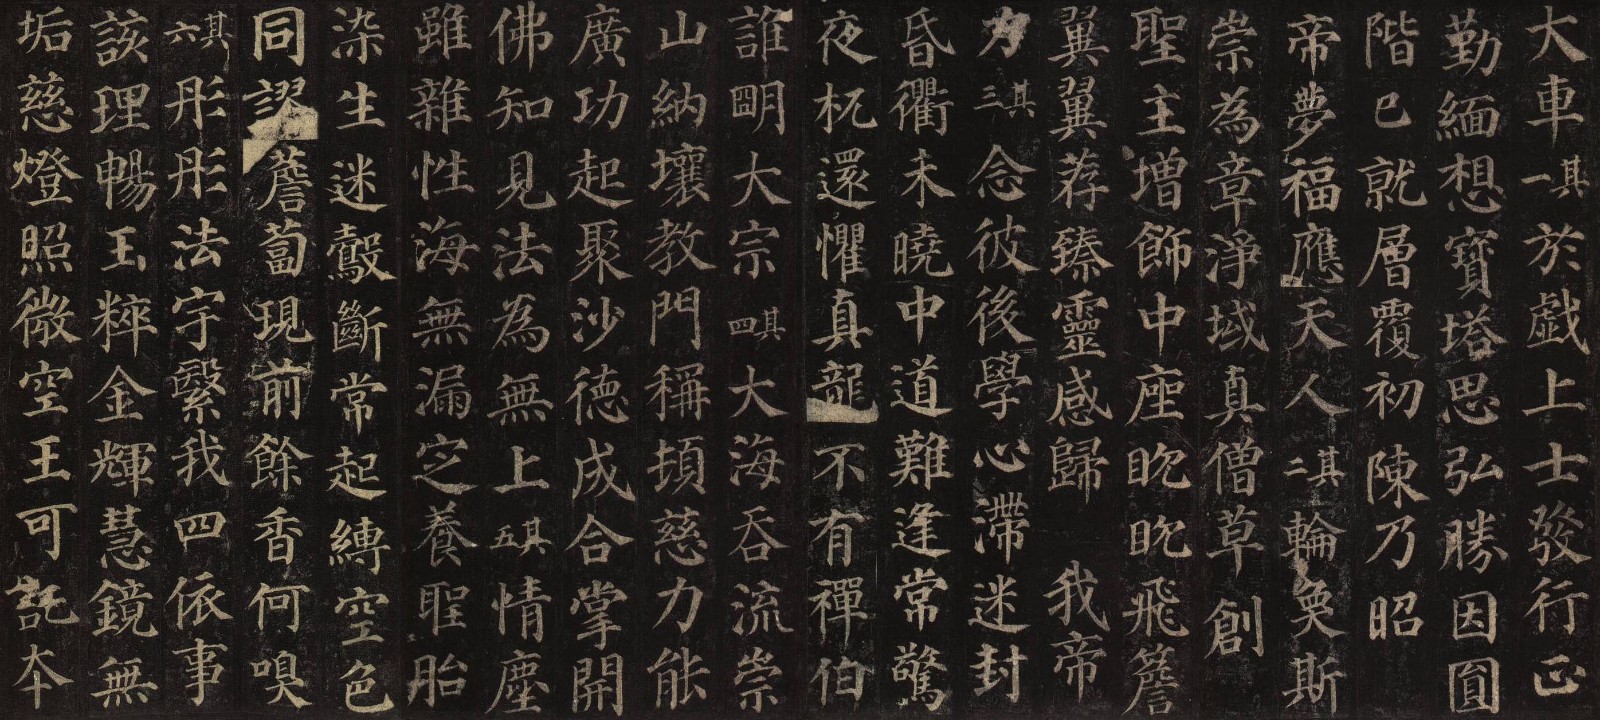 大車其一於戲上士發行正
勤緬想寶塔思弘勝因圓
階已就層覆初陳乃昭
帝夢福應天人其二輪奐斯
崇為章淨域真僧草創
聖主增飾中座眈眈飛簷
翼翼荐臻靈感歸 我帝
力其三念彼後學心滯迷封
昏衢未曉中道難逢常驚
夜杌還懼真龍不有禪伯
誰明大宗其四大海吞流崇
山納壤教門稱頓慈力能
廣功起聚沙德成合掌開
佛知見法為無上其五情塵
雖雜性海無漏定養聖胎
染生迷鷇斷常起縛空色
同謬薝蔔現前餘香何嗅
其六彤彤法宇繄我四依事
該理暢玉粹金輝慧鏡無
垢慈燈照微空王可託本